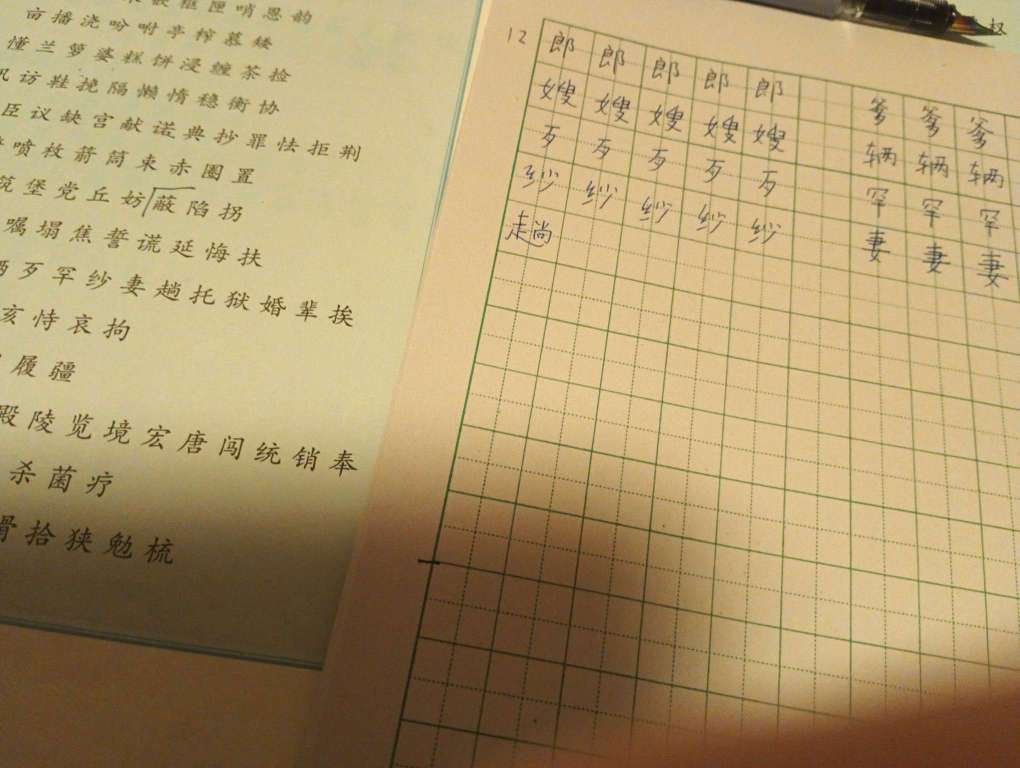 框匣哨恩韵
亩播浇吩咐亭榨慕矮
懂兰箩婆糕饼浸缠茶捡
访鞋挠隔懒惰稳衡协
臣议缺宫献诺典抄罪怯拒荆
喷枚箭筒束赤圈置
筑堡党丘妨蔽陷拐
嘱塌焦誓谎延悔扶
歹罕纱妻趟托狱婚辈挨
亥恃哀拘
履疆
殿陵览境宏唐闯统销奉
杀菌疗
拾狭勉梳
12 郎 郎 郎 郎 郎 爹 爹 爹
嫂 嫂 嫂 嫂 嫂 辆 辆 辆
歹 歹 歹 歹 歹 罕 罕 罕
纱 纱 纱 纱 纱 妻 妻 妻
趟